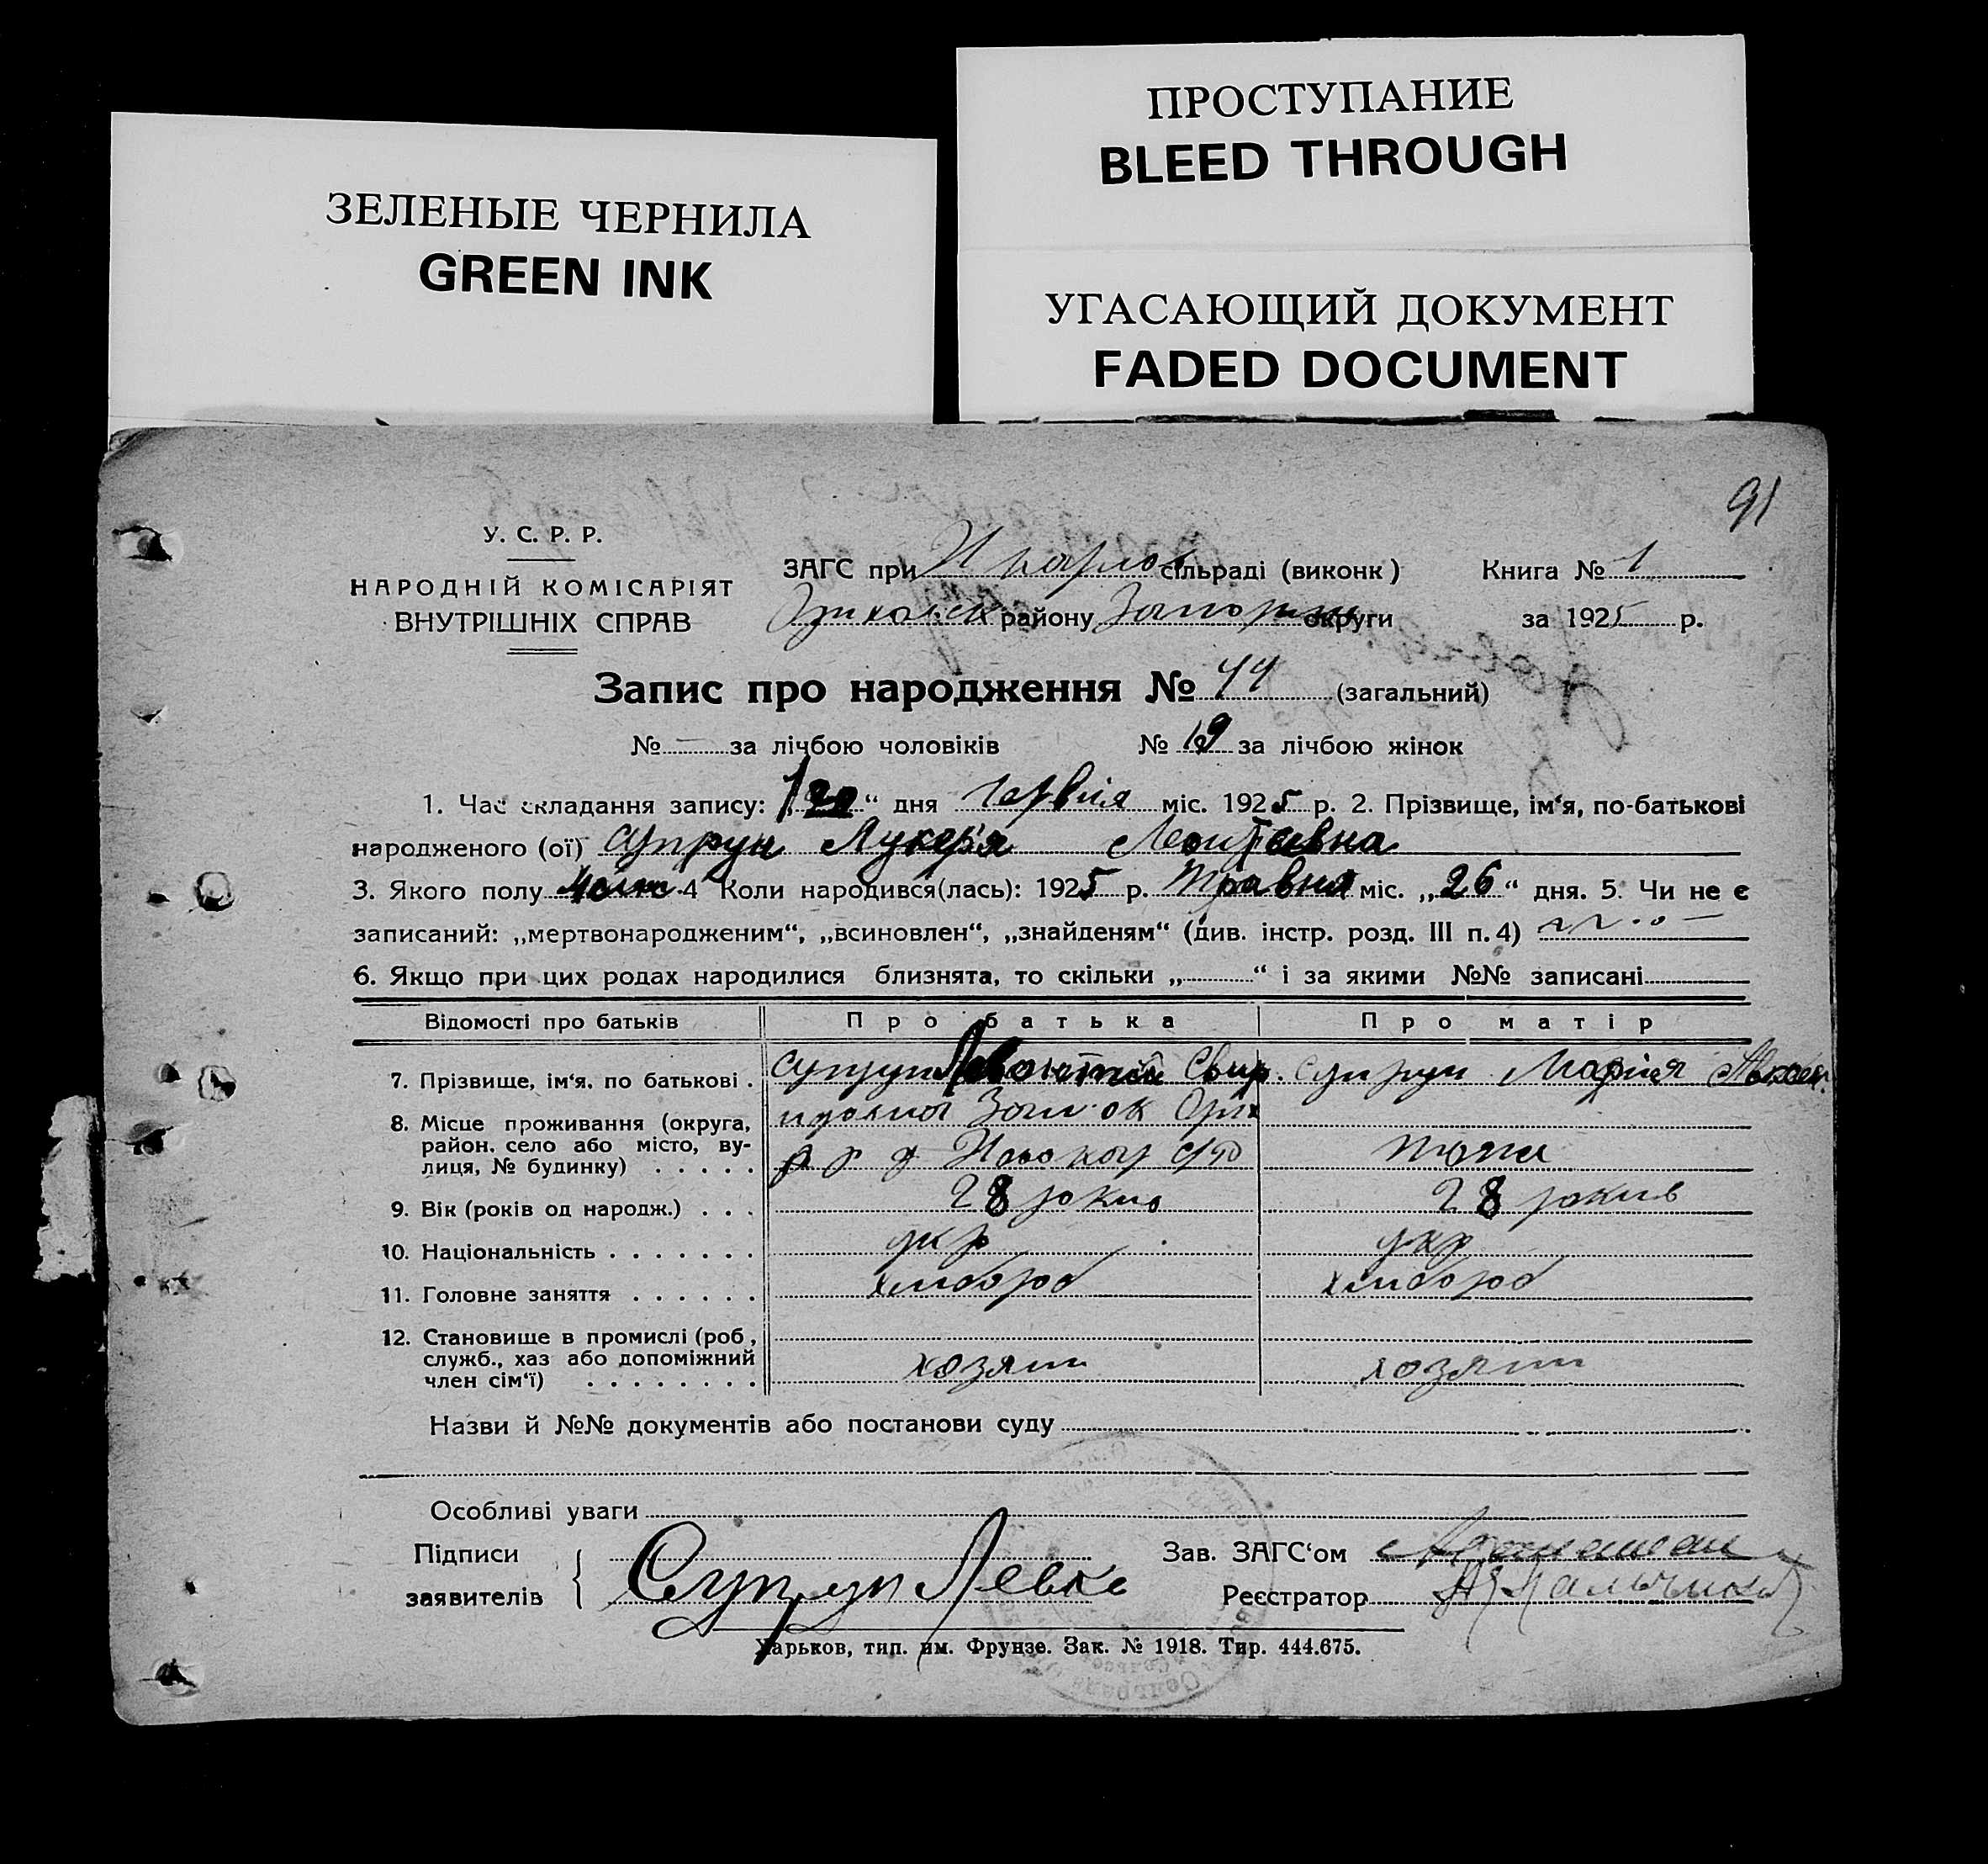 ПРОСТУПАНИЕ
BLEED THROUGH
ЗЕЛЕНЫЕ ЧЕРНИЛА
GREEN INK
УГАСАЮЩИЙ ДОКУМЕНТ
FADED DOCUMENT
91
У. С. Р. Р.
НАРОДНІЙ КОМІСАРІЯТ
ВНУТРІШНІХ СПРАВ
ЗАГС при Н карлов сільраді (виконк) Книга № 1
району округи за 1925 р.
Запис про народження № 44 (загальний)
№ — за лічбою чоловіків № 19 за лічбою жінок
1. Час складання запису: “ дня червня міс. 1925 р. 2. Прізвище, ім‘я, по-батькові
народженого (ої) Супрун Лукер'я Леонтіевна
3. Якого полу 4 Коли народився(лась): 1925 р. Травня міс. „26“ дня. 5. Чи не є
записаний: „мертвонародженим“, „всиновлен“, „знайденям“ (див. інстр. розд. III п. 4)
6. Якщо при цих родах народилися близнята, то скільки „ “ і за якими №№ записані
Відомості про батьків Про батька Про матір
7. Прізвище, ім‘я. по батькові . Супрун Левонтій Свир. Супрун Мария
8. Місце проживання (округа,
район, село або місто, ву-
лиця, № будинку) . . . . .
9. Вік (років од народж.) . . . 28 рокив 28 рокив
10. Національність . . . . . . . укр укр
11. Головне заняття . . . . . . хлибороб хлибороб
12. Становище в промислі (роб,
служб., хаз або допоміжний
член сім‘ї) . . . . . . . . хозяин хозяин
Назви й №№ документів або постанови суду
Особливі уваги
Підписи
заявителів Супрун Левко
Зав. ЗАГС‘ом
Реєстратор
Харьков, тип. им. Фрунзе. Зак. № 1918. Тир. 444.675.